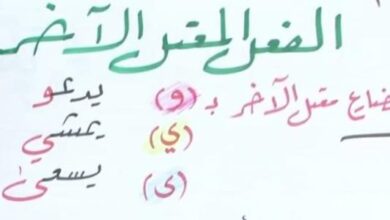 الفعل المعتل الآخر
مضارع معتل الآخر بـ (و) يدعو
(ي) يمشي
(ى) يسعى